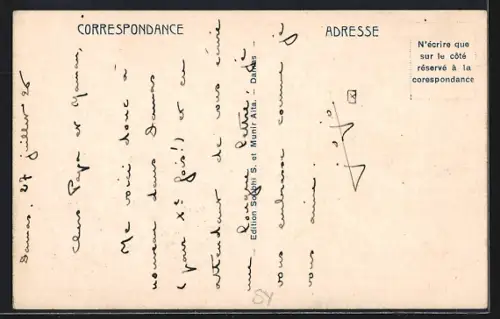 CORRESPONDANCE
ADRESSE
N'écrire que
sur le côté
réservé à la
corespondance
Edition Soubhi S. et Munir Aita. - Damas
Damas, 27 juillet 26
Chers Papa et Maman,
Me voici donc à
nouveau dans Damas
(pour Xe fois!) et en
attendant de vous écrire
une longue lettre, je
vous embrasse comme je
vous aime.